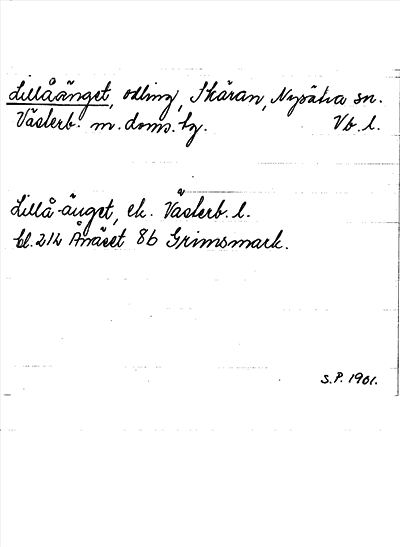 Lillåänget, odling, Skäran, Nysätra sn.
Västerb. m. doms. tg. Vb. l.
Lillå-änget, ek. Västerb. l.
bl. 212 Ånäset 8b Grimsmark.
S.P. 1901.